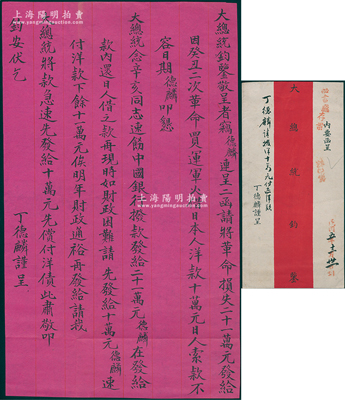 上海陽明拍賣有限公司
大總統鈞鑒敬呈者竊德麟連呈二函請將革命損失二十一萬元發給
因癸丑二次革命買運軍火借日本人洋款十萬元日人索款不
容日期德麟叩懇
大總統念辛亥同志速飭中國銀行撥款發給二十一萬元德麟在發給
款內還日人借之款再現時如財政困難請先發給十萬元德麟速
付洋款下餘十一萬元俟明年財政通裕再發給請我
大總統將款急速先發給十萬元先償付洋債此肅敬叩
鈞安伏乞
丁德麟謹呈
內要函呈
大總統鈞鑒
丁德麟請撥洋十萬元付還洋款
丁德麟謹呈